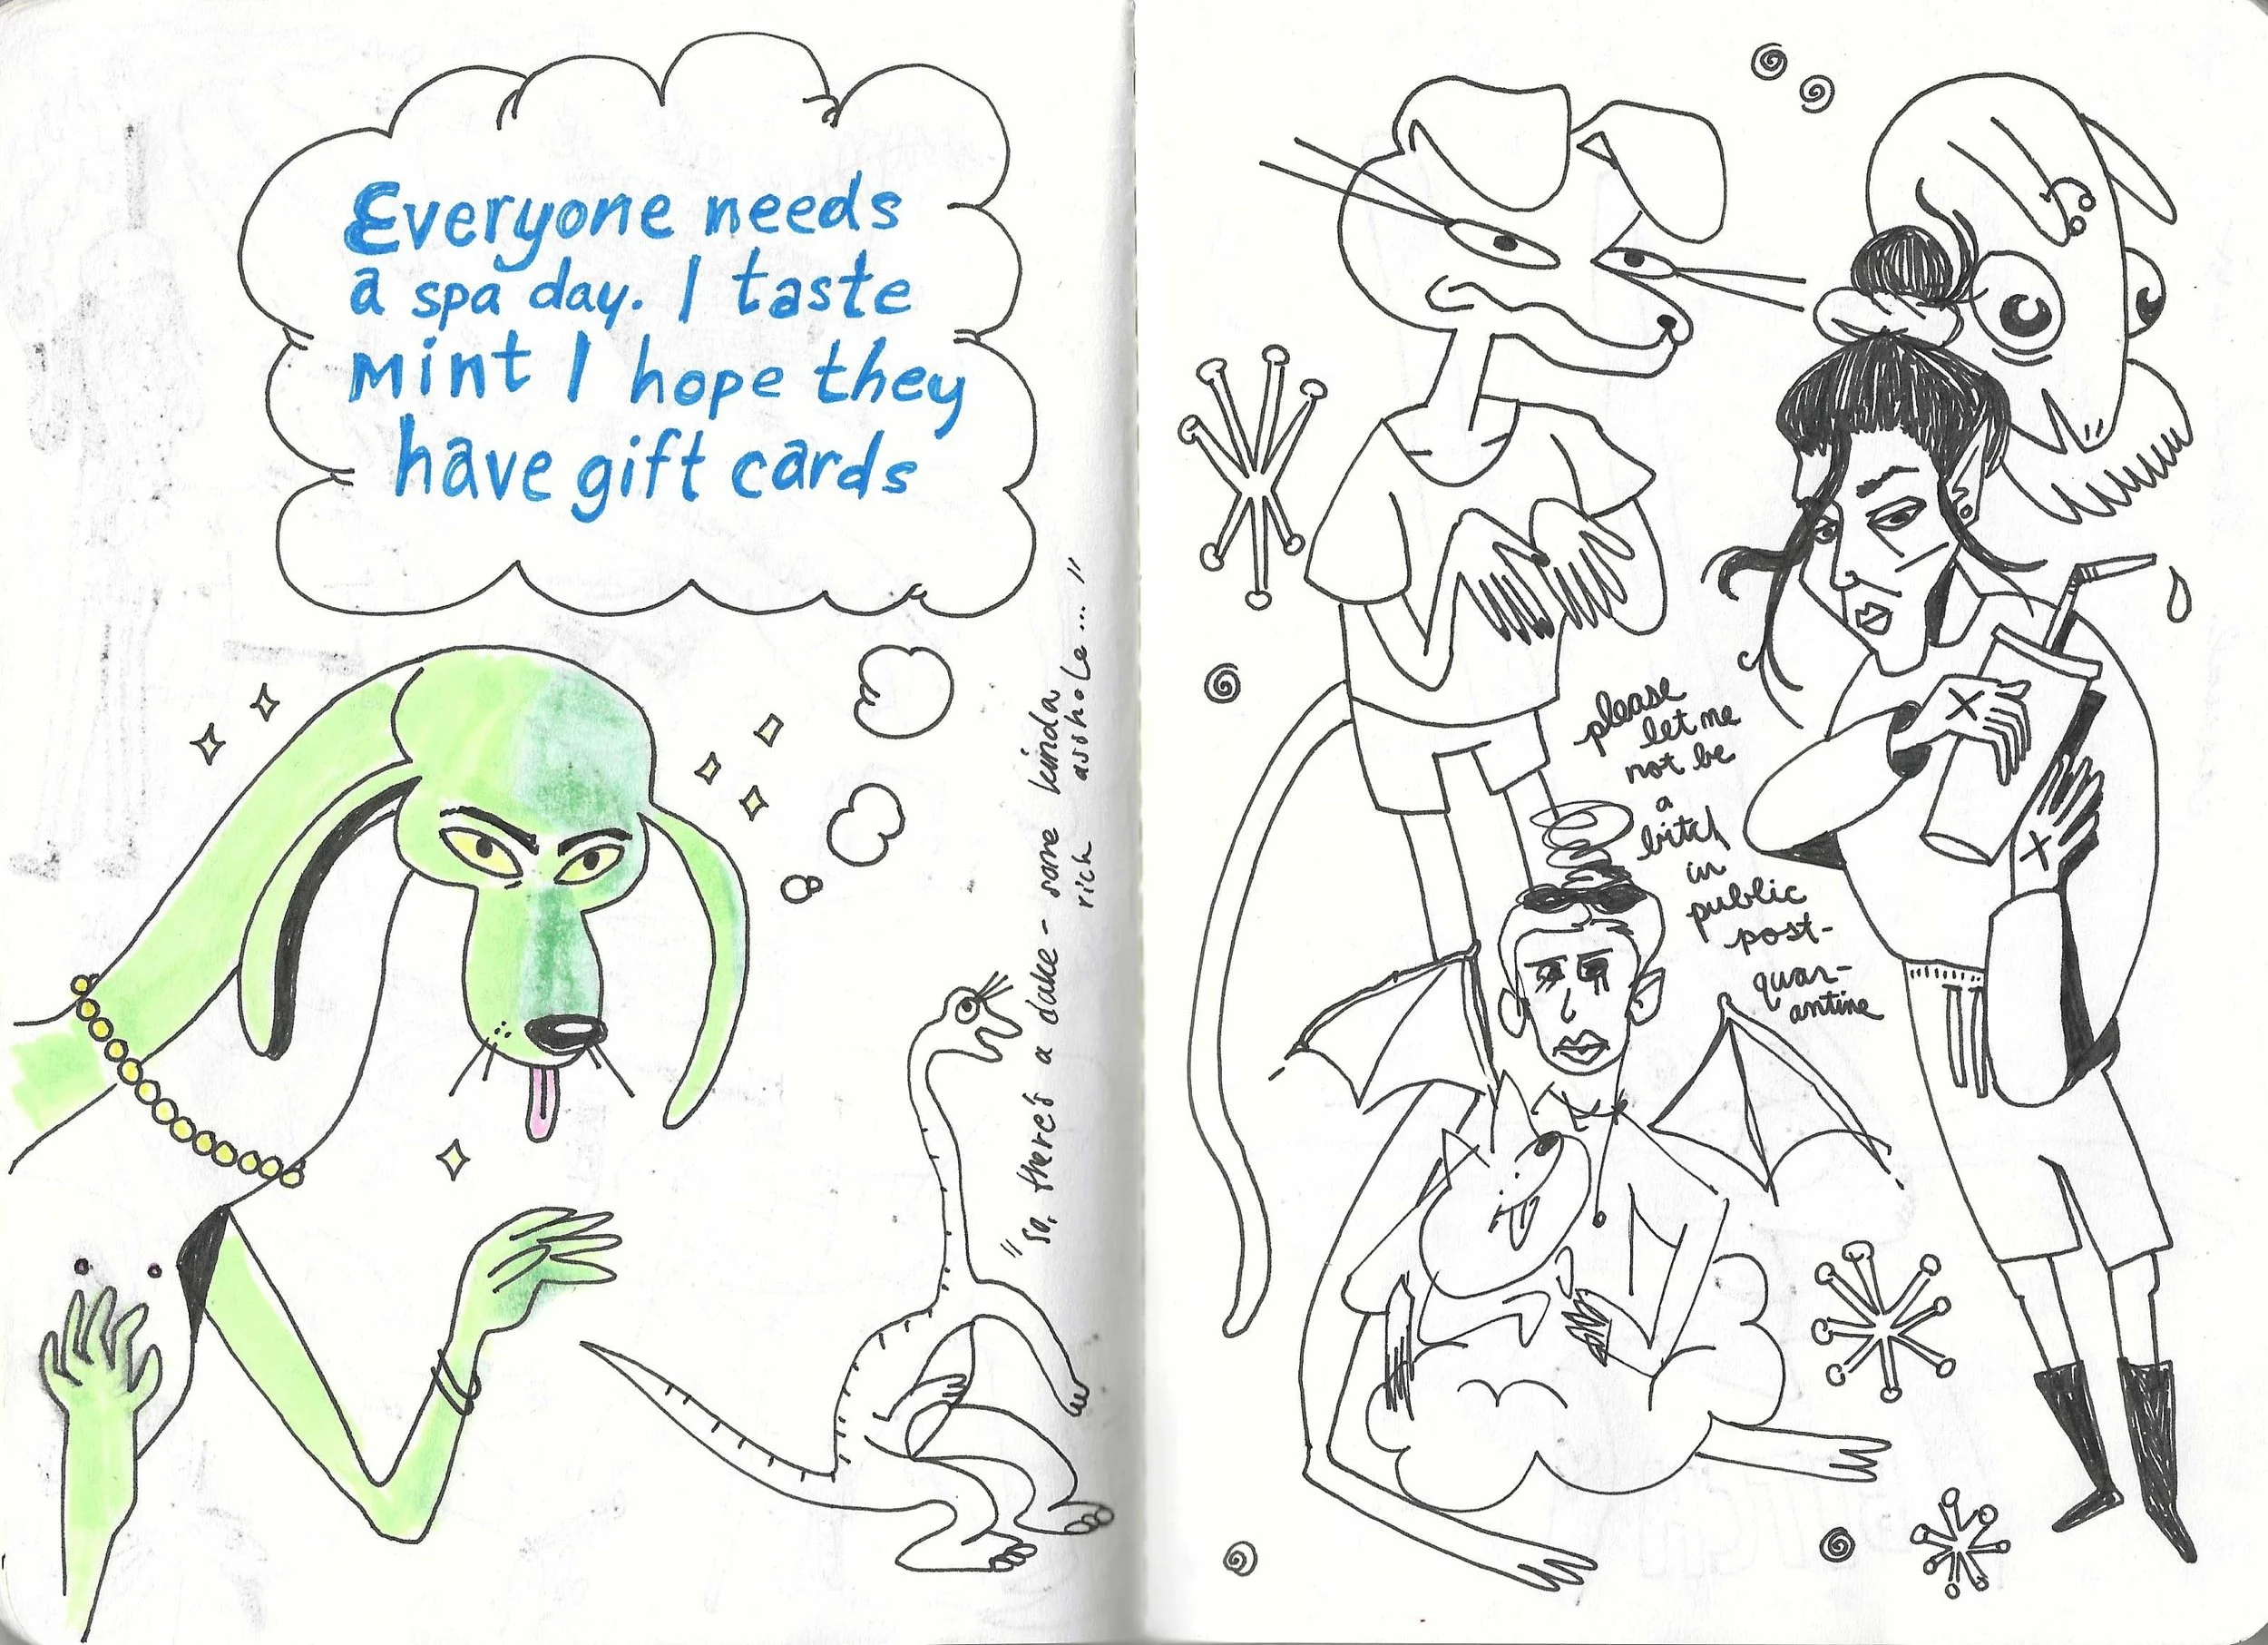 Everyone needs
a spa day. I taste
mint I hope they
have gift cards
"so, there's a duke - some kinda
rich asshole..."
please
let me
not be
a
bitch
in
public
post-
quar-
antine